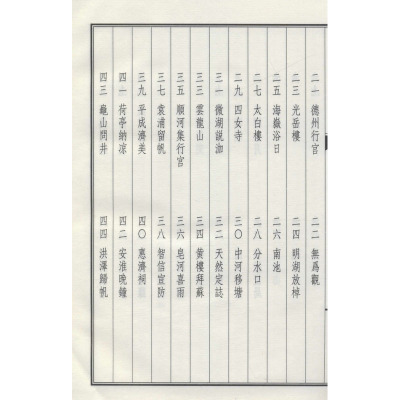 二一 德州行宫
二二 無爲觀
二三 光岳樓
二四 明湖放棹
二五 海嶽浴日
二六 南池
二七 太白樓
二八 分水口
二九 四女寺
三〇 中河移塘
三一 微湖説泇
三二 天然定誌
三三 雲龍山
三四 黄樓拜蘇
三五 順河集行宫
三六 皂河喜雨
三七 袁浦留帆
三八 智信宣防
三九 平成濟美
四〇 惠濟祠
四一 荷亭納凉
四二 安淮晚鐘
四三 龜山問井
四四 洪澤歸帆